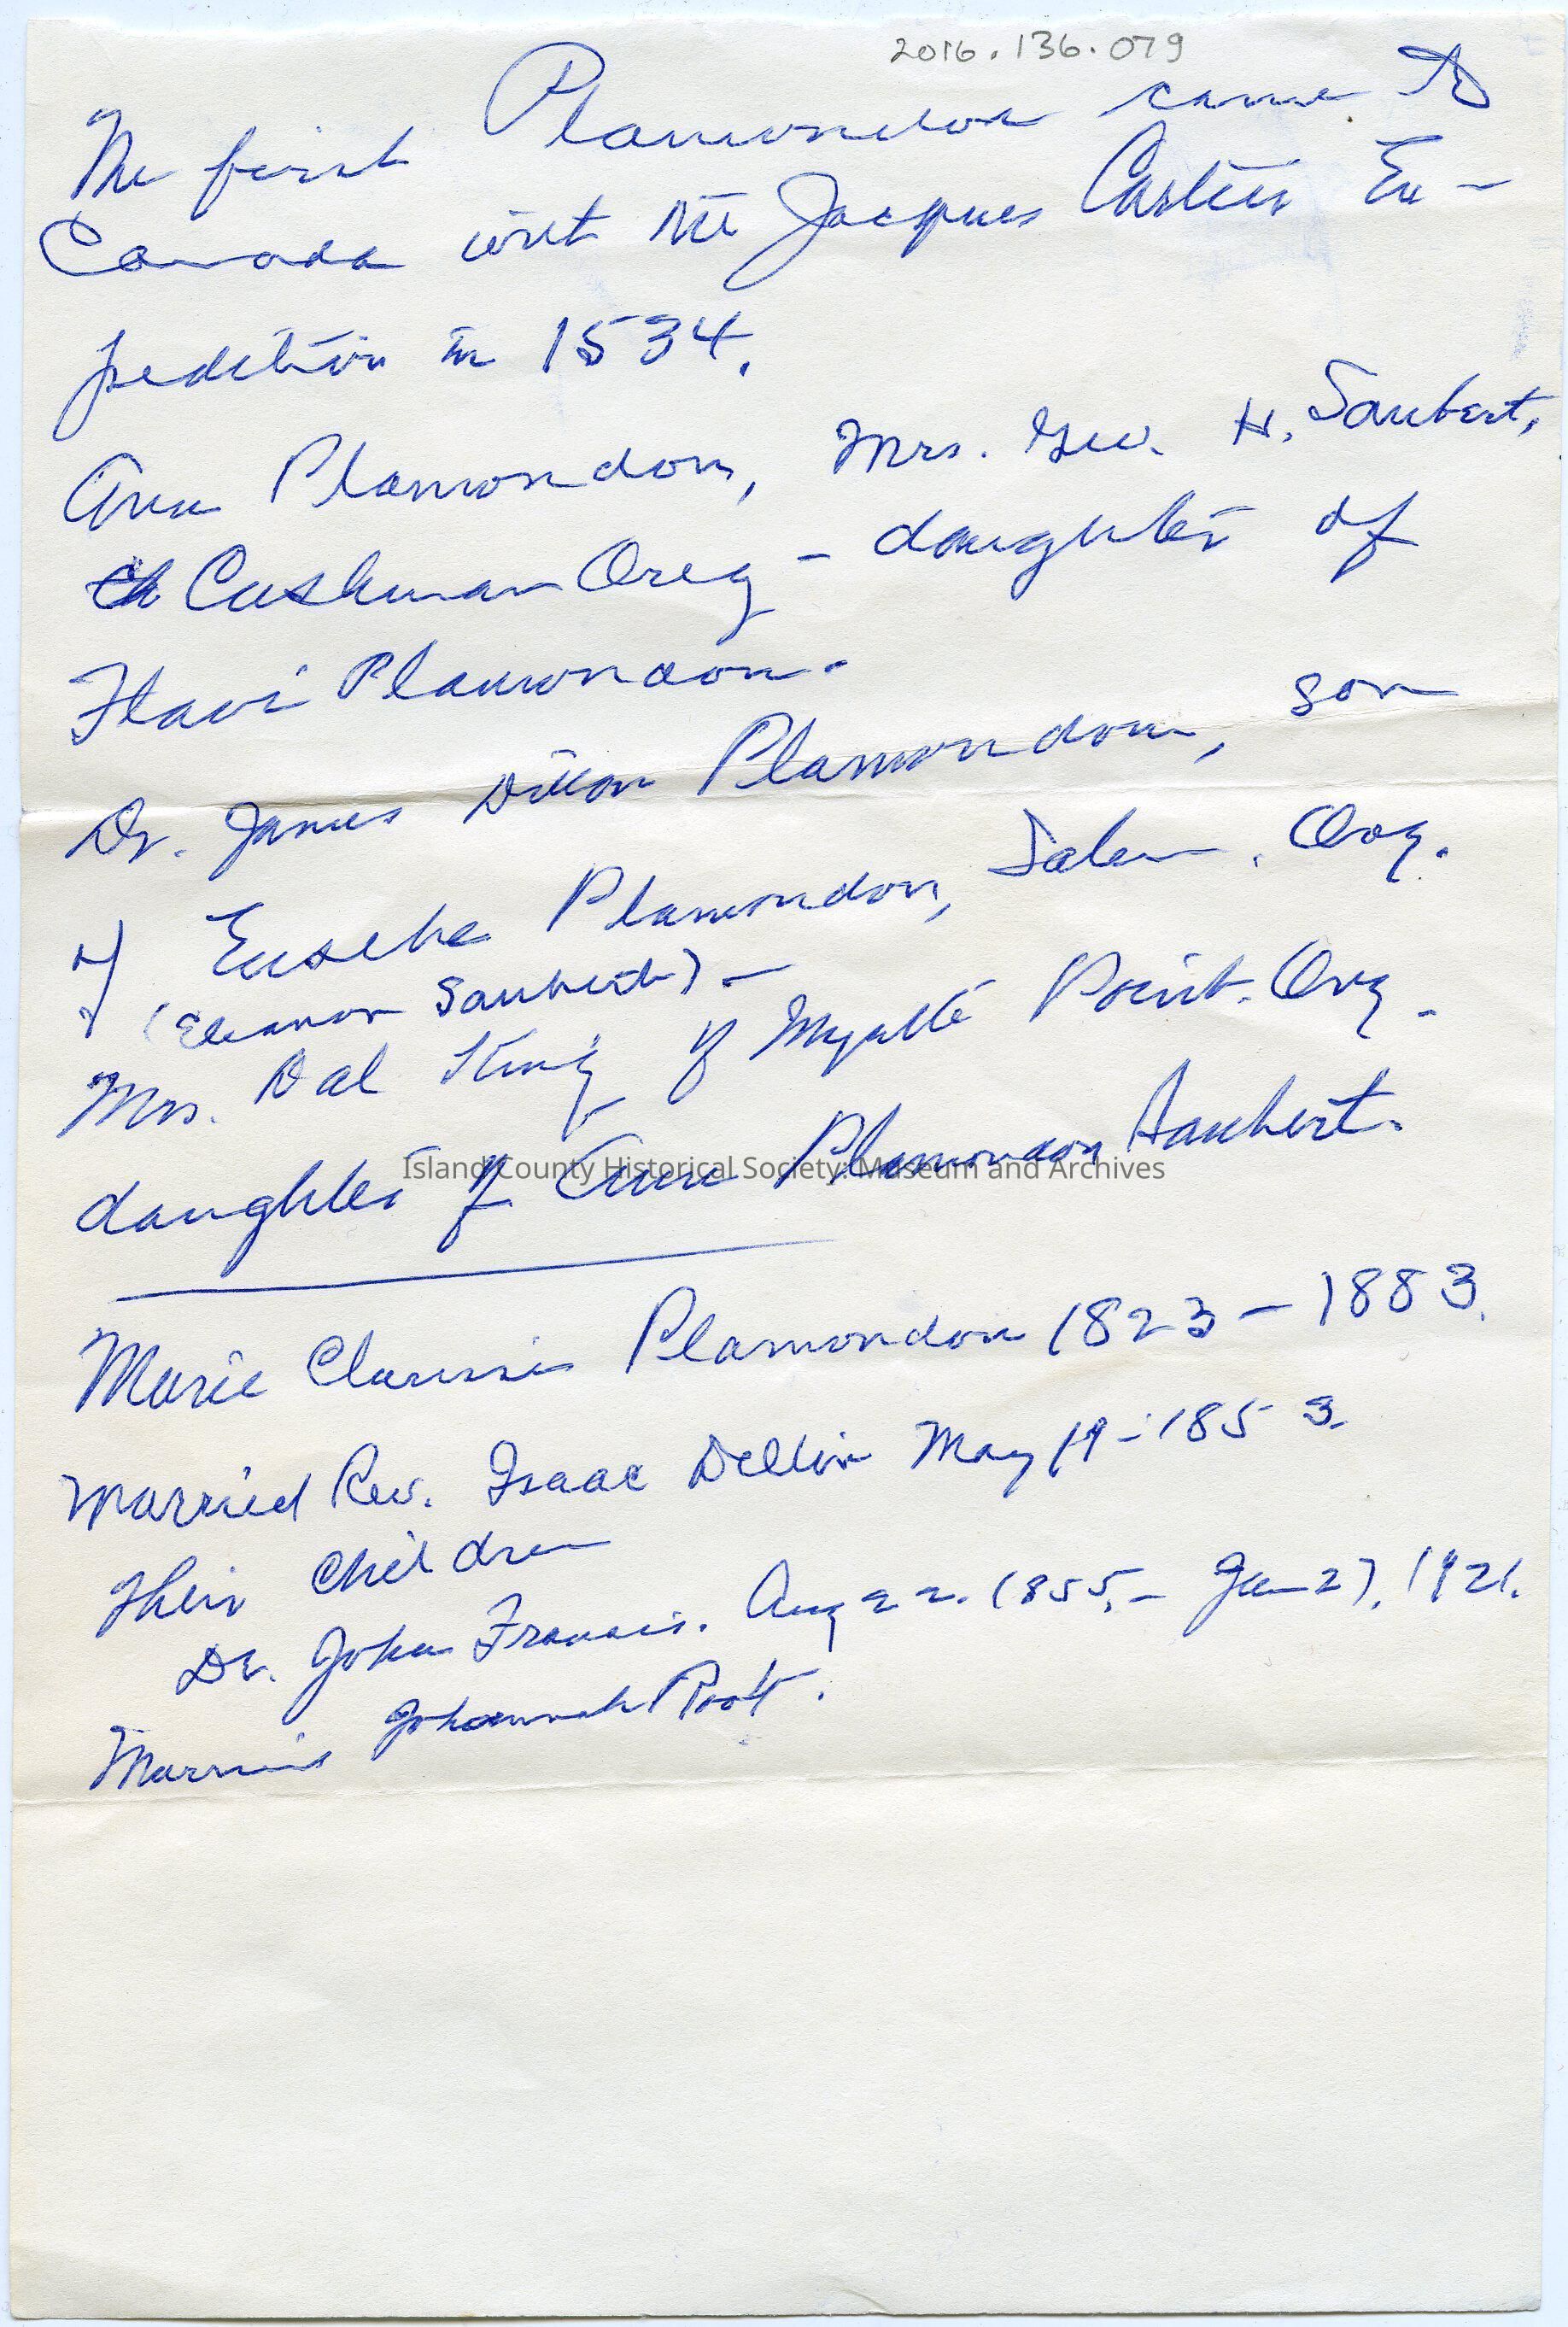 2016.136.079
The first Plamondon came to
Canada with the Jacques Cartier Ex-
pedition in 1534.
Ann Plamondon, Mrs. Geo. H. Saubert,
Cushman Oreg - daughter of
Flavi Plamondon.
Dr. James Dillon Plamondon, son
of Eusebe Plamondon, Salem, Org.
(Eleanor Saubert) -
Mrs. Dal King of Myrtle Point. Org.
daughter of Anne Plamondon Saubert.
Island County Historical Society: Museum and Archives
Marie Clarissi Plamondon 1823-1883.
Married Rev. Isaac Dillon May 19-1853.
Their Children
Dr. John Francis. Aug 22. 1855. - Jan 27, 1921.
Married Johannah Root.